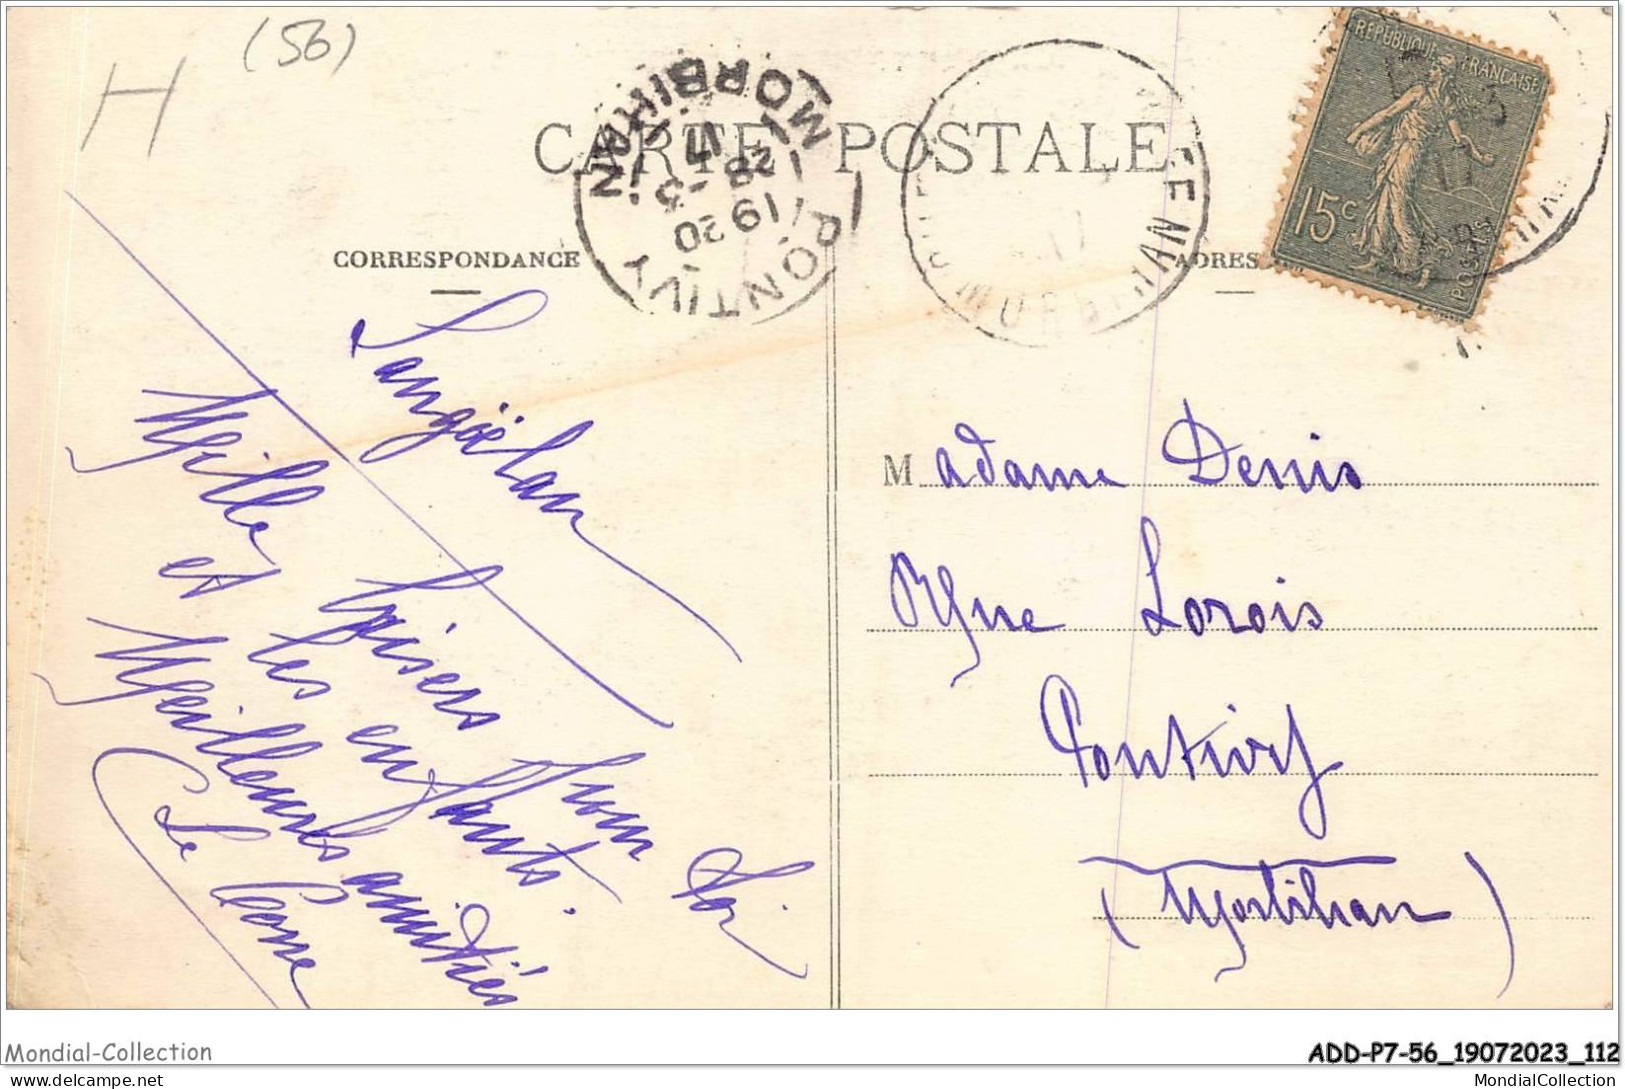 (56)
H
CARTE POSTALE
CORRESPONDANCE
ADRES
PONTIVY
19 20
28 -3
17
MORBIHAN
MORBIHAN
REPUBLIQUE FRANÇAISE
15c
POSTES
Langoëlan
Mille baisers pour toi
et les enfants.
Meilleures amitiés
Le Corre
Madame Denis
Rue Lorois
Pontivy
(Morbihan)
Mondial-Collection
ADD-P7-56_19072023_112
delcampe.net
MondialCollection